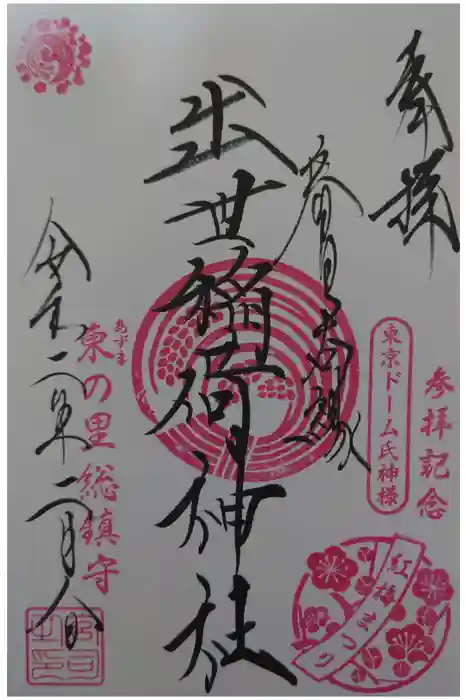 奉拝
参拝記念
東京ドーム氏神様
春日局御縁
出世稲荷神社
あずま
東の里総鎮守
令和二年二月八日
紅梅まつり